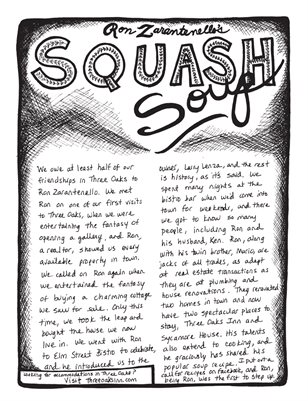 Ron Zarantenello's
SQUASH
Soup
We owe at least half of our
friendships in Three Oaks to
Ron Zarantenello. We met
Ron on one of our first visits
to Three Oaks, when we were
entertaining the fantasy of
opening a gallery, and Ron,
a realtor, showed us every
available property in town.
We called on Ron again when
we entertained the fantasy
of buying a charming cottage
we saw for sale. Only this
time, we took the leap and
bought the house we now
live in. We went with Ron
to Elm Street Bistro to celebrate,
and he introduced us to the
owner, Larry Lenza, and the rest
is history, as it's said. We
spent many nights at the
bistro bar when we'd come into
town for weekends, and there
we got to know so many
people, including Ron and
his husband, Ken. Ron, along
with his twin brother, Mario, are
jacks of all trades, as adept
at real estate transactions as
they are at plumbing and
house renovations. They renovated
two homes in town and now
have two spectacular places to
stay, Three Oaks Inn and
Sycamore House. His talents
also extend to cooking, and
he graciously has shared his
popular soup recipe. I put out a
call for recipes on Facebook, and Ron,
being Ron, was the first to step up.
Looking for accommodations in Three Oaks?
Visit threeoaksinn.com